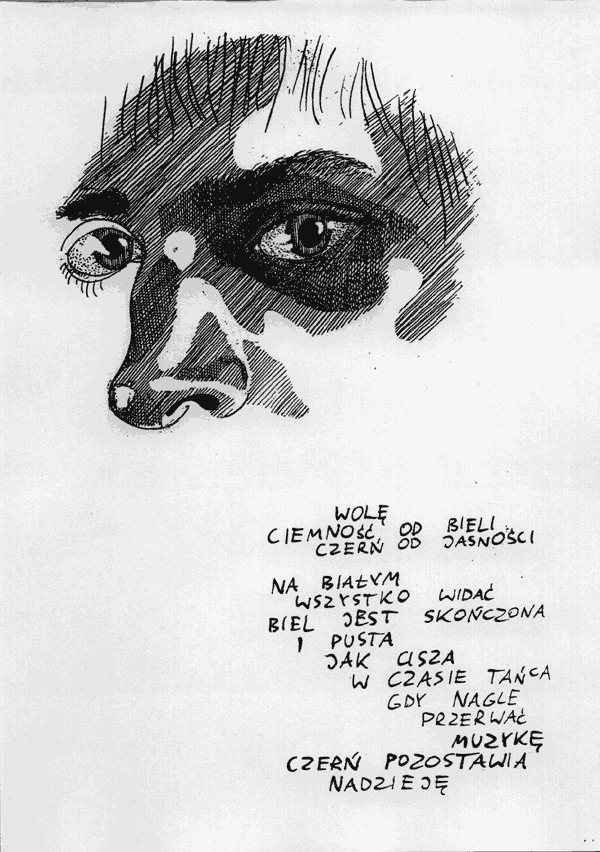 WOLĘ
CIEMNOŚĆ OD BIELI
CZERŃ OD JASNOŚCI
NA BIAŁYM
WSZYSTKO WIDAĆ
BIEL JEST SKOŃCZONA
I PUSTA
JAK CISZA
W CZASIE TAŃCA
GDY NAGLE
PRZERWAĆ
MUZYKĘ
CZERŃ POZOSTAWIA
NADZIEJĘ